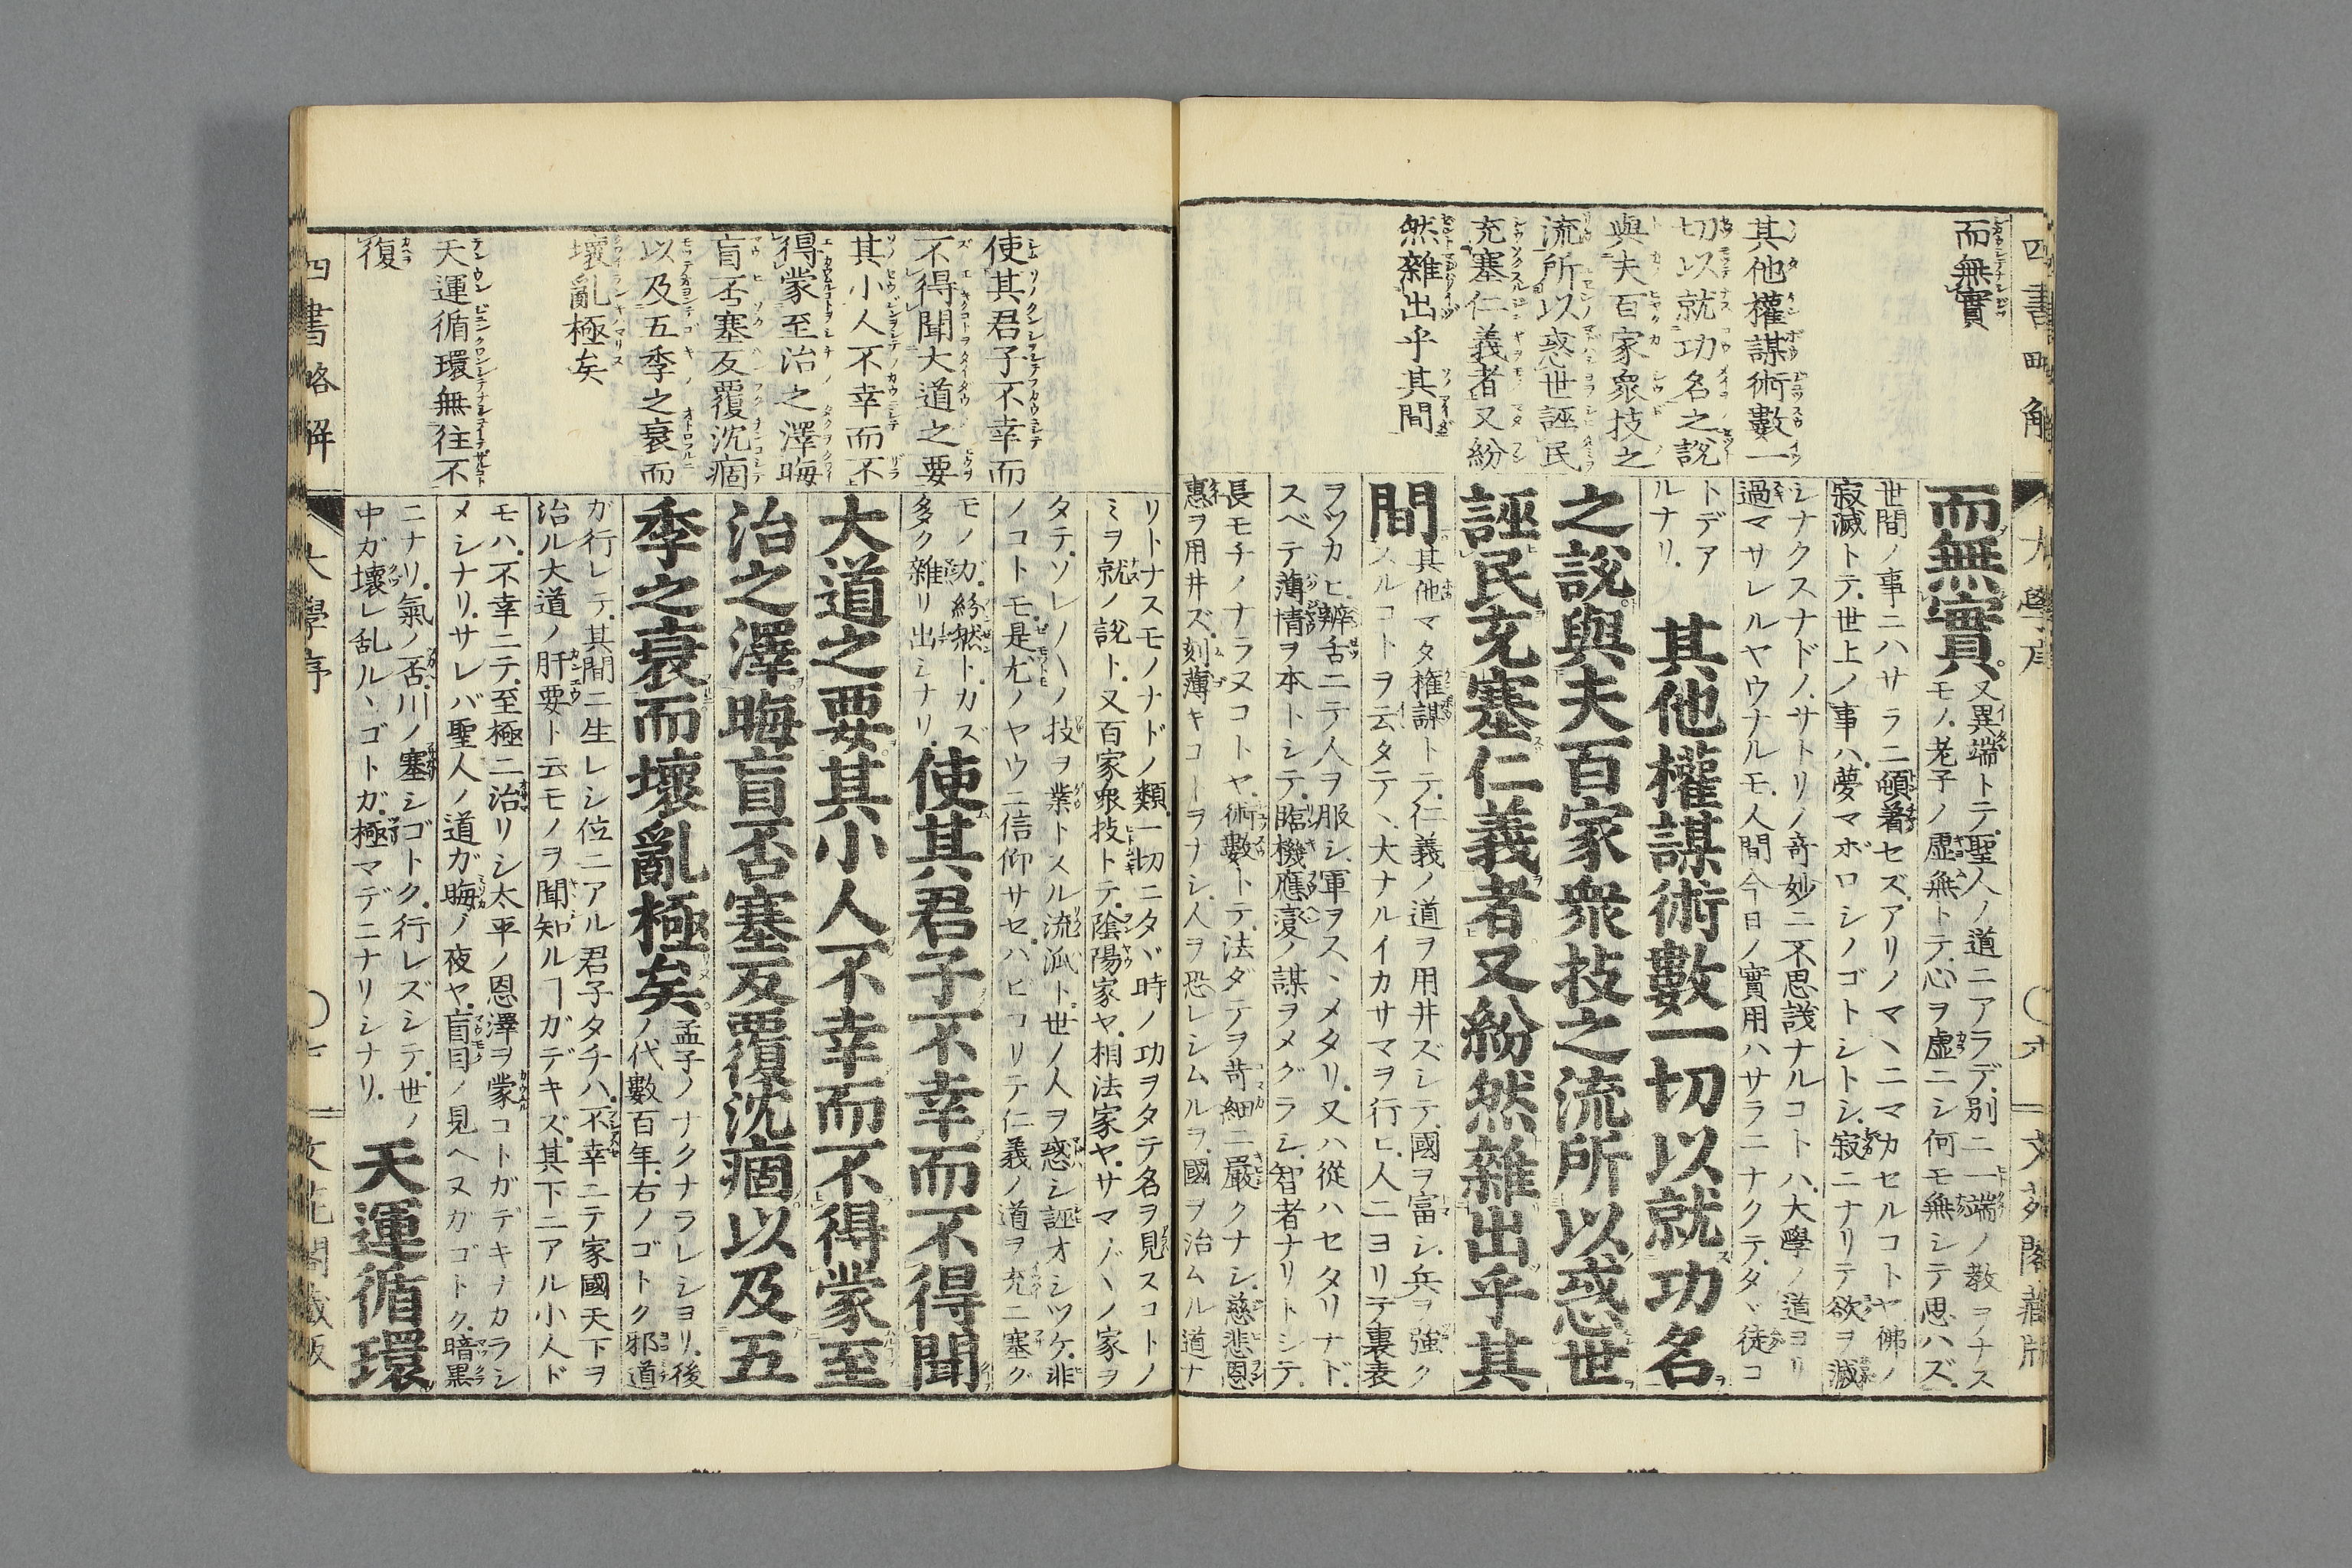 四書略解
大學序
〇六
文花閣藏版
而無實
其他權謀術數一
切以就功名之説
與夫百家衆技之
流所以惑世誣民
充塞仁義者又紛
然雜出乎其間
而無實。又異端トテ聖人ノ道ニアラデ、別ニ一端ノ教ヲナス
モノ、老子ノ虚無トテ、心ヲ虚ニシ何モ無シテ思ハズ、
世間ノ事ニハサラニ頓着セズ、アリノマヽニマカセルコトヤ佛ノ
寂滅トテ、世上ノ事ハ、夢マボロシノゴトシトシ、寂ニナリテ欲ヲ滅
シナクスナドノ、サトリノ奇妙ニ不思議ナルコトハ、大學ノ道ヨリ
過マサレルヤウナルモ、人間今日ノ實用ハサラニナクテ、タヾ徒コ
トデア
ルナリ。
其他權謀術數一切以就功名
之説與夫百家衆技之流所以惑世
誣民充塞仁義者又紛然雜出乎其
間。其他マタ権謀トテ、仁義ノ道ヲ用井ズシテ、國ヲ富シ、兵ヲ強ク
スルコトヲ云タテヽ、大ナルイカサマヲ行ヒ、人ニヨリテ裏表
ヲツカヒ、辨舌ニテ人ヲ服シ、軍ヲスヽメタリ、又ハ從ハセタリナド、
スベテ薄情ヲ本トシテ、臨機應変ノ謀ヲメグラシ、智者ナリトシテ、
長モチノナラヌコトヤ、術數トテ、法ダテヲ苛細ニ嚴クナシ、慈悲恩
惠ヲ用井ズ、刻薄キコトヲナシ、人ヲ恐レシムルヲ、國ヲ治ムル道ナ
使其君子不幸而
不得聞大道之要
其小人不幸而不
得蒙至治之澤晦
盲否塞反覆沈痼
以及五季之衰而
壞亂極矣
天運循環無往不
復
リトナスモノナドノ類、一切ニタヾ時ノ功ヲタテ名ヲ見スコトノ
ミヲ就ノ説ト、又百家衆技トテ、陰陽家ヤ、相法家ヤ、サマ〴〵ノ家ヲ
タテ、ソレ〳〵ノ技ヲ業トスル流派ト、世ノ人ヲ惑シ誣オシツケ、非
ノコトモ、是尤ノヤウニ信仰サセ、ハビコリテ仁義ノ道ヲ充ニ塞グ
モノガ、紛然トカズ
多ク雜リ出シナリ。
使其君子不幸而不得聞
大道之要其小人不幸而不得蒙至
治之澤晦盲否塞反覆沈痼以及五
季之衰而壞亂極矣。孟子ノナクナラレシヨリ、後
ノ代數百年、右ノゴトク邪道
ガ行レテ、其間ニ生レシ位ニアル君子タチハ、不幸ニテ家國天下ヲ
治ル大道ノ肝要ト云モノヲ聞知ルヿガデキズ、其下ニアル小人ド
モハ、不幸ニテ、至極ニ治リシ太平ノ恩澤ヲ蒙コトガデキナカラシ
メシナリ、サレバ聖人ノ道ガ晦ノ夜ヤ、盲目ノ見ヘヌガゴトク、暗黒
ニナリ、氣ノ否、川ノ塞シゴトク、行レズシテ、世ノ
中ガ壞レ乱ルヽゴトガ、極マデニナリシナリ。
天運循環
四書略解
大學序
文花閣藏版